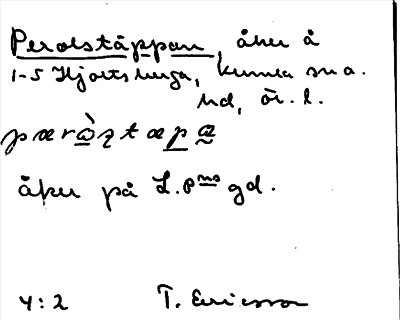 Perolstäppan, åker å
1-5 Hjortsberga, Kumla sn a.
hd, ör. l.
pæròztæpa
åker på L.Pns gd.
4:2 T. Ericsson